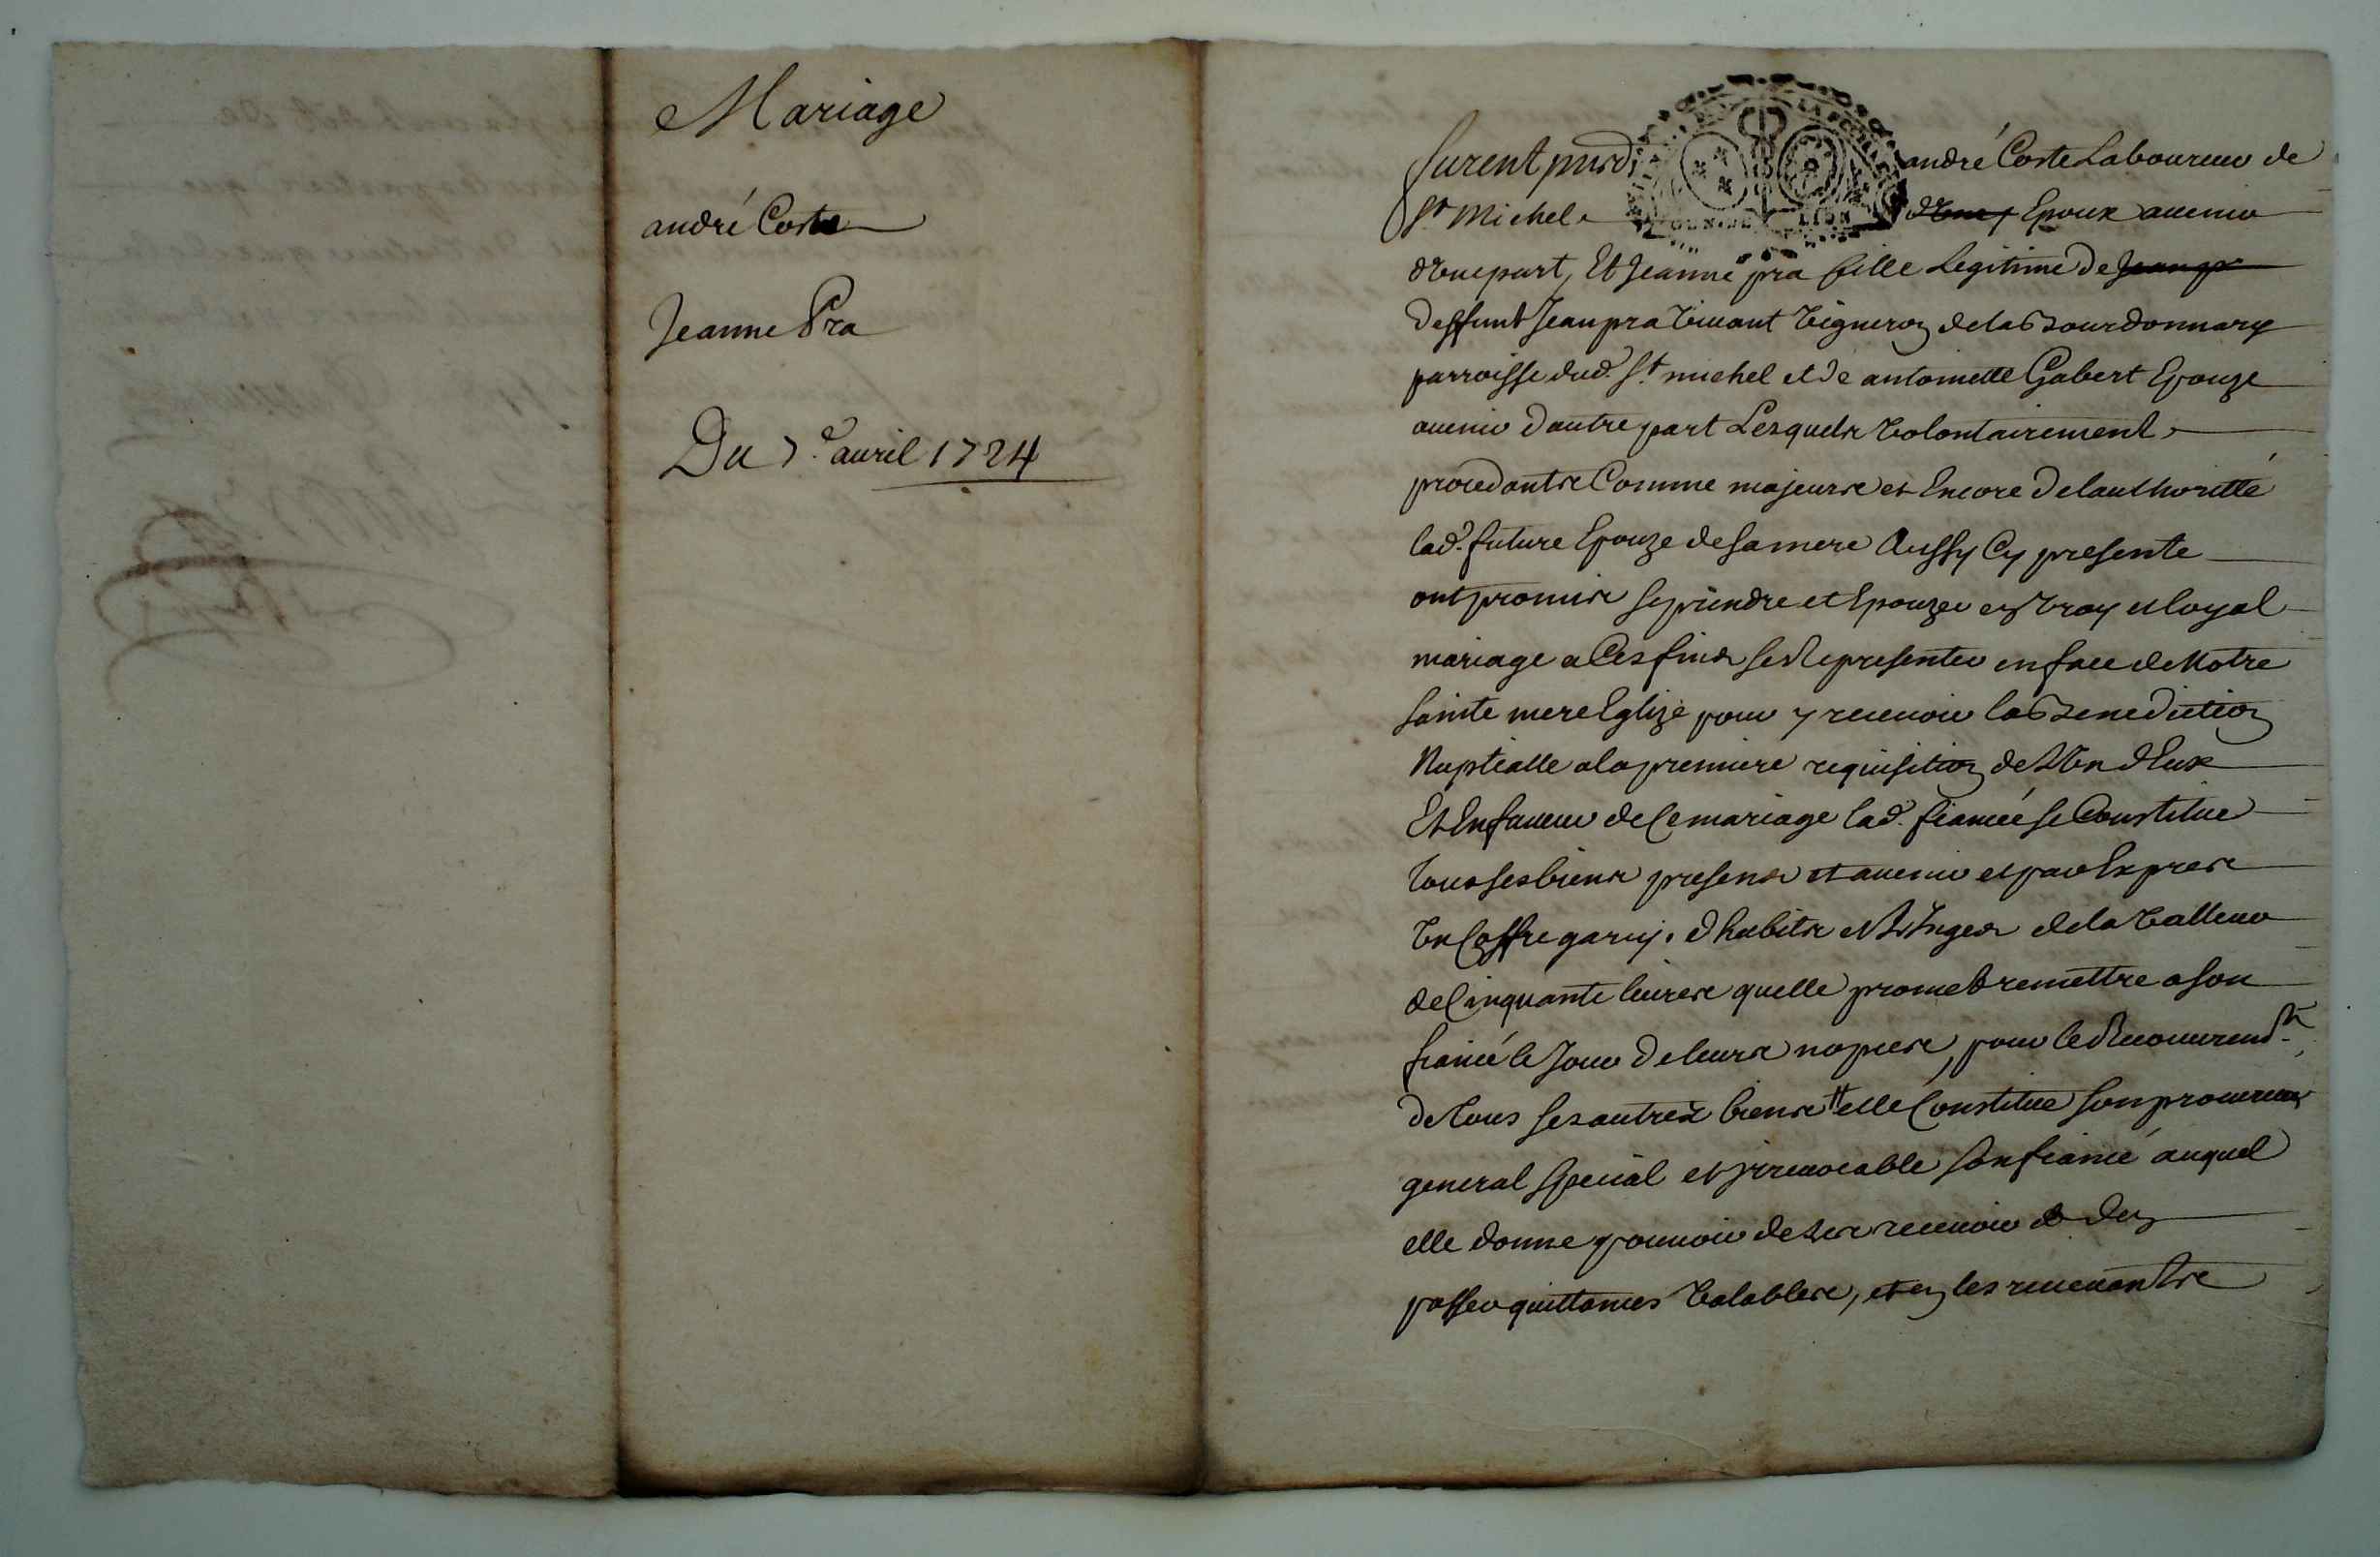 Mariage
andré Coste
Jeanne Pra
Du 7e. auril 1724
furent pnts andré Coste Laboureur de
St Michel d'une Epoux auenir
d'Vne part, Et Jeanne pra fille Legitime de Jean pr
deffunt Jean pra Viuant Vigneron de la Bourdonnary
parroisse dud. St. michel et de antoinette Gabert Epouze
auenir d'autre part Lesquels Volontairement
procedants Comme majeurs et Encore de lauthoritté
lad. future Epouze de sa mere Aussy Cy presente
ont promis se prendre et Epouzer en Vray et loyal
mariage a Ces fins se Representer en face de Notre
sainte mere Eglize pour y receuoir la Benediction
Nuptialle a la premiere requisition de L'Vn d'Eux
Et En faueur de Ce mariage lad. fiancée se Constitue
tous ses biens presens et auenir et par Expres
Vn Coffre garny d'habits et Linges de la Valleur
de Cinquante liures quelle promet remettre a son
fiancé le Jour de leurs nopces, pour le Recouuremt.
de tous ses autres biens elle Constitue son procureur
general special et irreuocable son fiancé auquel
elle donne pouuoir de les receuoir den
passer quittances Valables, et en les receuant
LION